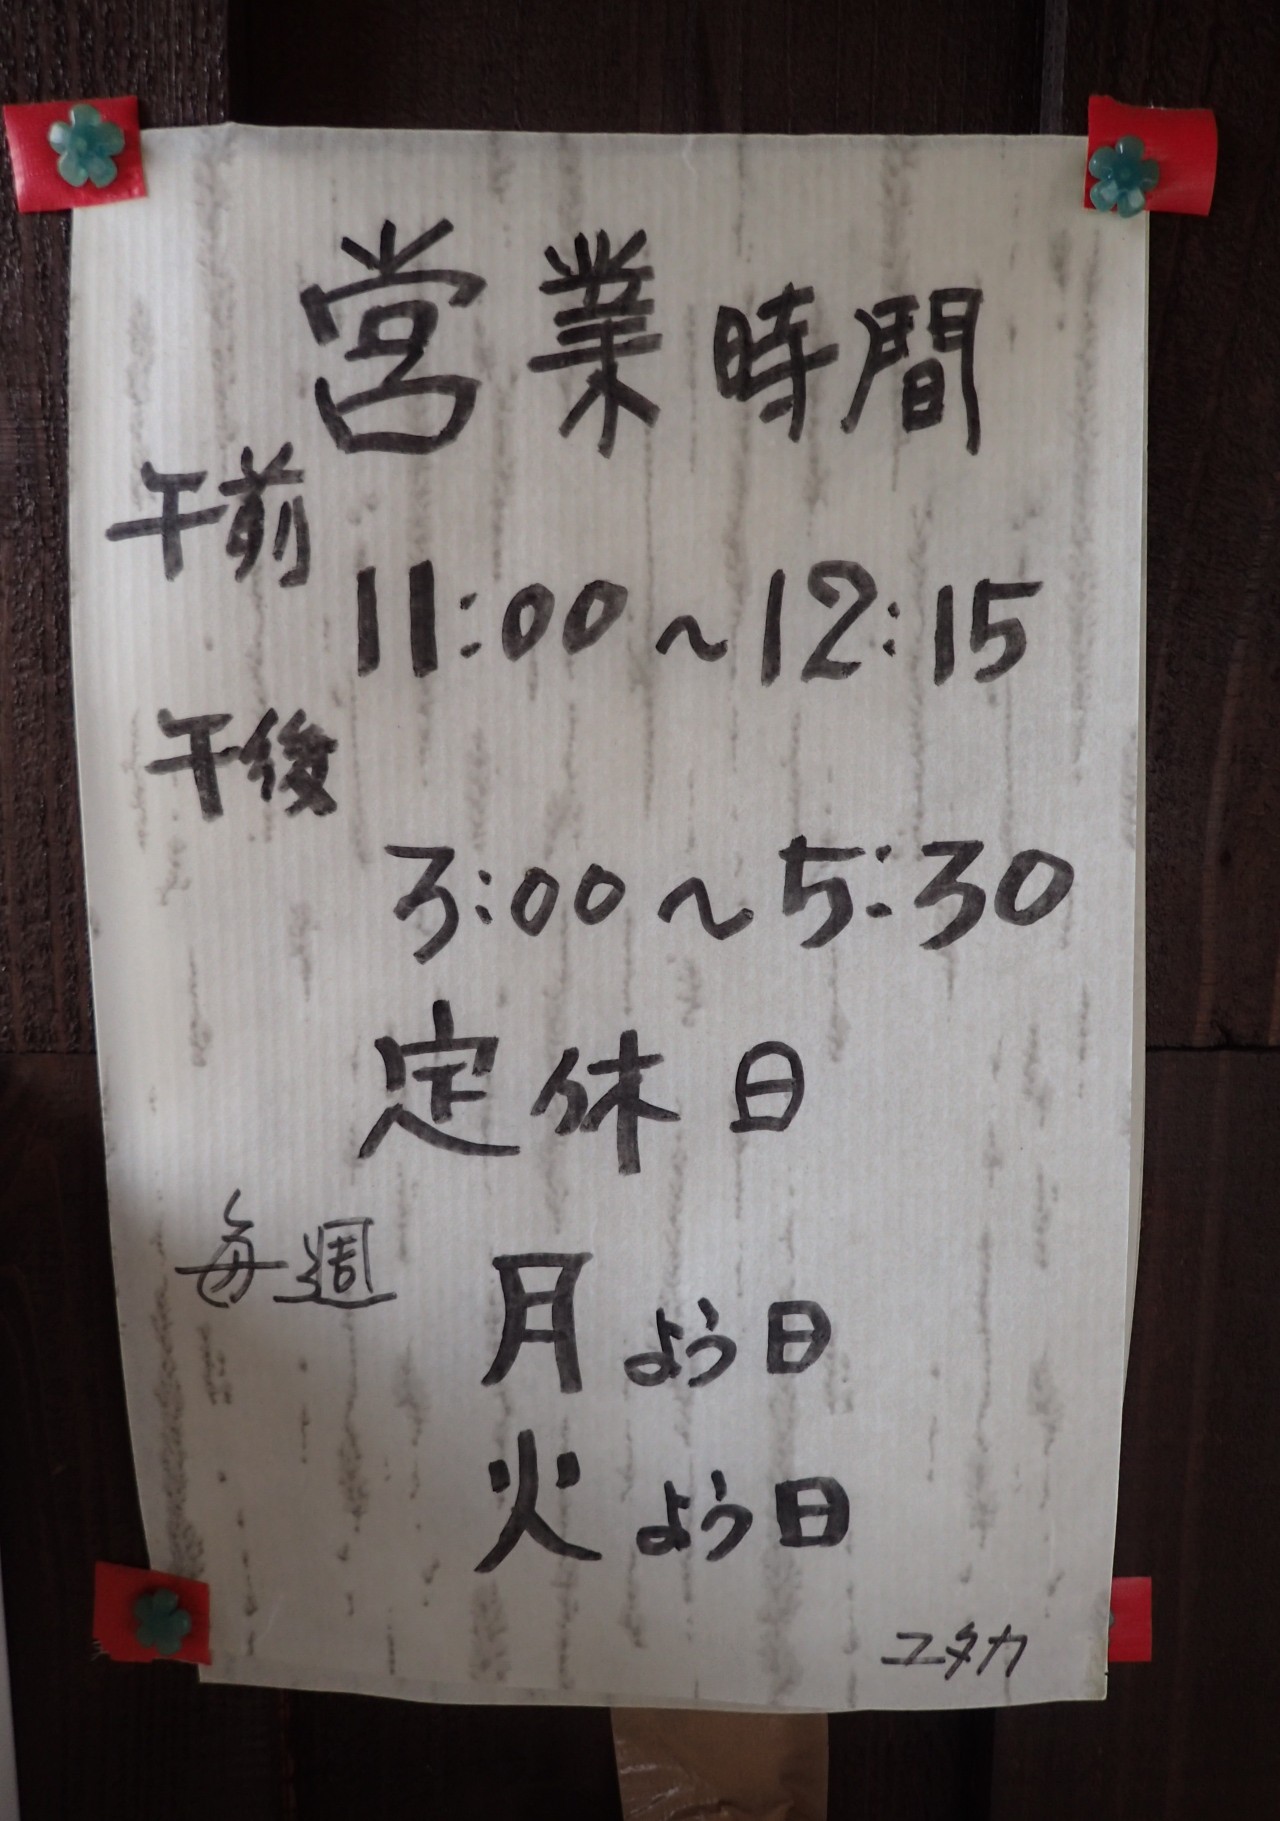 営業時間
午前
11:00～12:15
午後
3:00～5:30
定休日
毎週 月よう日
火よう日
ユタカ